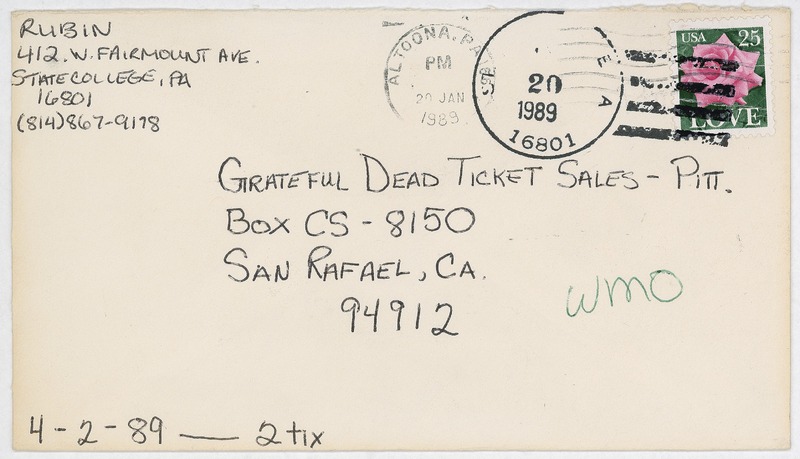 RUBIN
412 W. FAIRMOUNT AVE.
STATE COLLEGE, PA
16801
(814) 867-9178
ALTOONA, PA
PM
20 JAN
1989
20
1989
16801
USA 25
LOVE
GRATEFUL DEAD TICKET SALES - PITT.
BOX CS - 8150
SAN RAFAEL, CA.
94912
WMO
4 - 2 - 89 — 2 tix